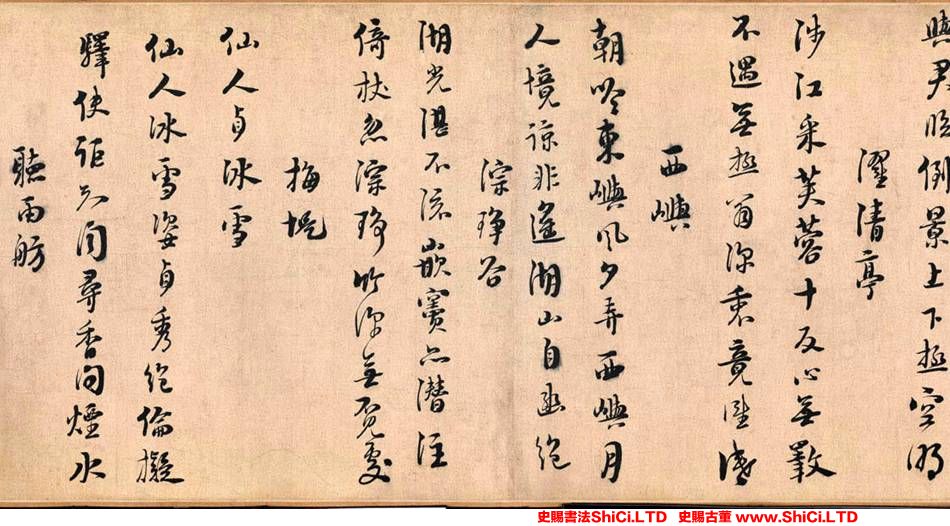 與君臨倒景上下極空明
濯清亭
涉江采芙蓉十反心無斁
不遇無極翁深衷竟誰識
西嶼
朝吟東嶼風夕弄西嶼月
人境諒非遙湖山自幽絶
淙琤谷
湖光湛不流嵌竇亦潛注
倚杖忽淙琤竹深無覓處
梅堤
仙人貞冰雪
仙人冰雪姿貞秀絶倫擬
驛使詎知聞尋香問煙水
聽雨舫
史賜書法ShiCi.LTD 史賜古董 www.ShiCi.LTD